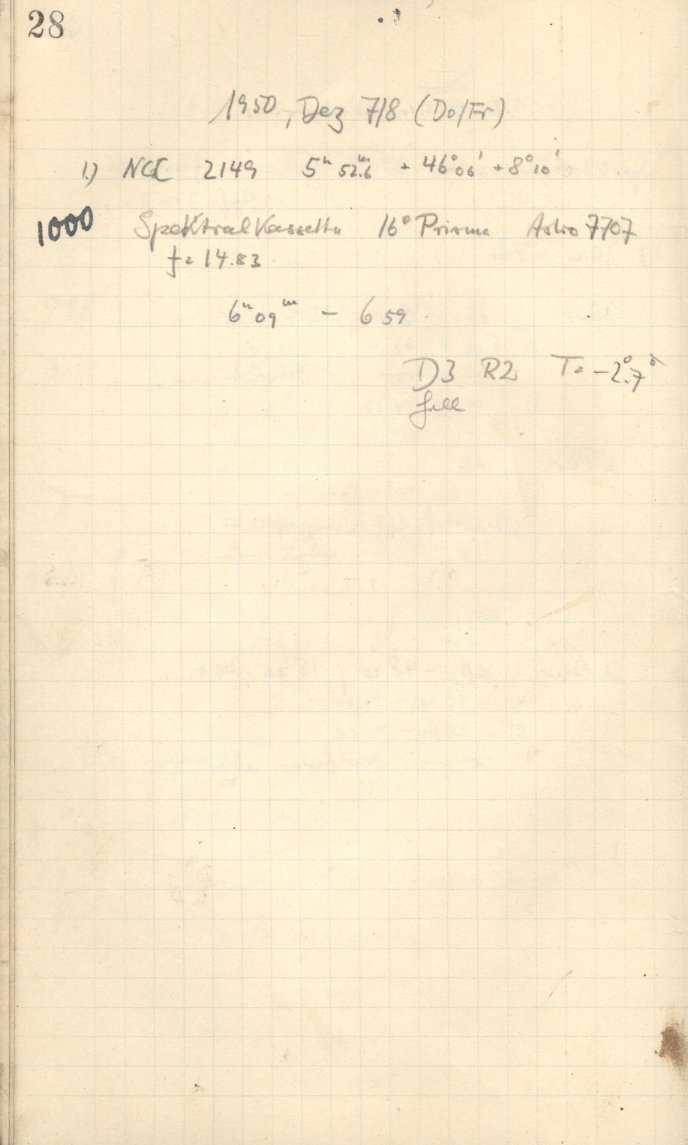 28
1950, Dez 7/8 (Do/Fr)
1.) NGC 2149 5ʰ 52ᵐ.6 + 46°06' + 8°10'
1000 Spektralkassette 16° Prisma Astro 7707
f = 14.83
6ʰ09ᵐ – 6 59
D3 R2 T = -2°.7